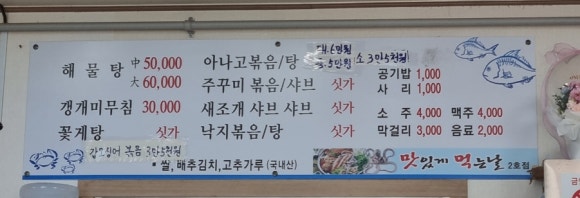 해물탕 中 50,000
大 60,000
갱개미무침 30,000
꽃게탕 싯가
갑오징어 볶음 3만5천원
아나고볶음/탕 대.6만원 소 3만5천원
주꾸미 볶음/샤브 싯가
새조개 샤브 샤브 싯가
낙지볶음/탕 싯가
공기밥 1,000
사 리 1,000
소 주 4,000 맥주 4,000
막걸리 3,000 음료 2,000
• 쌀, 배추김치, 고추가루 (국내산)
맛있게 먹는날 2호점